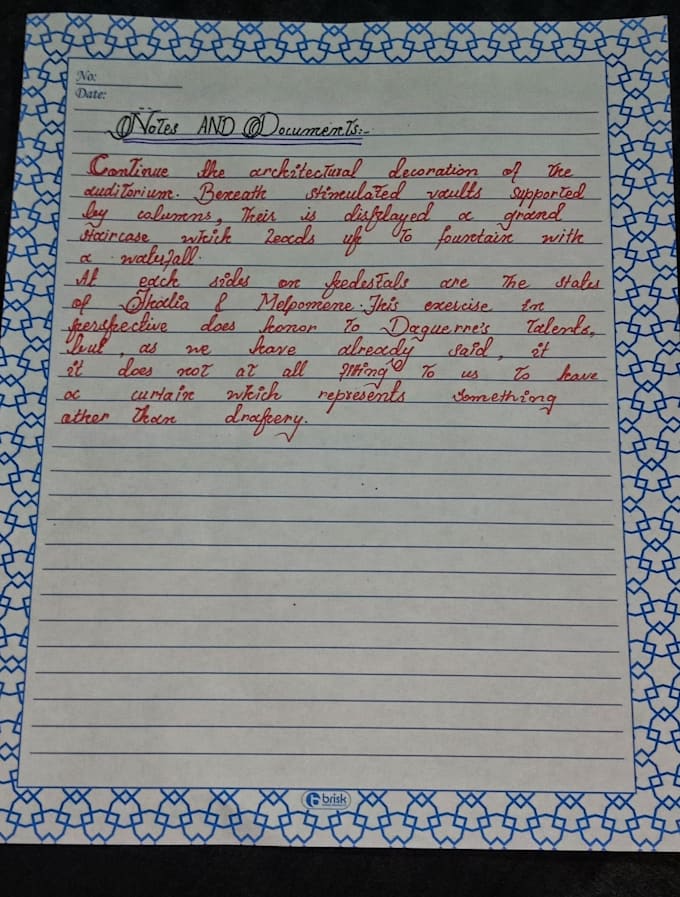 No:
Date:
Notes AND Documents:-
Continue the architectural decoration of the
auditorium. Beneath stimulated vaults supported
by columns, Their is displayed a grand
staircase which Leads up To fountain with
a waterfall.
At each sides on pedestals are The states
of Thalia & Melpomene. This exercise in
perspective does honor To Daguerre's Talents,
but, as we have already said, it
it does not at all To us To have
a curtain which represents something
other Than drapery.
brisk